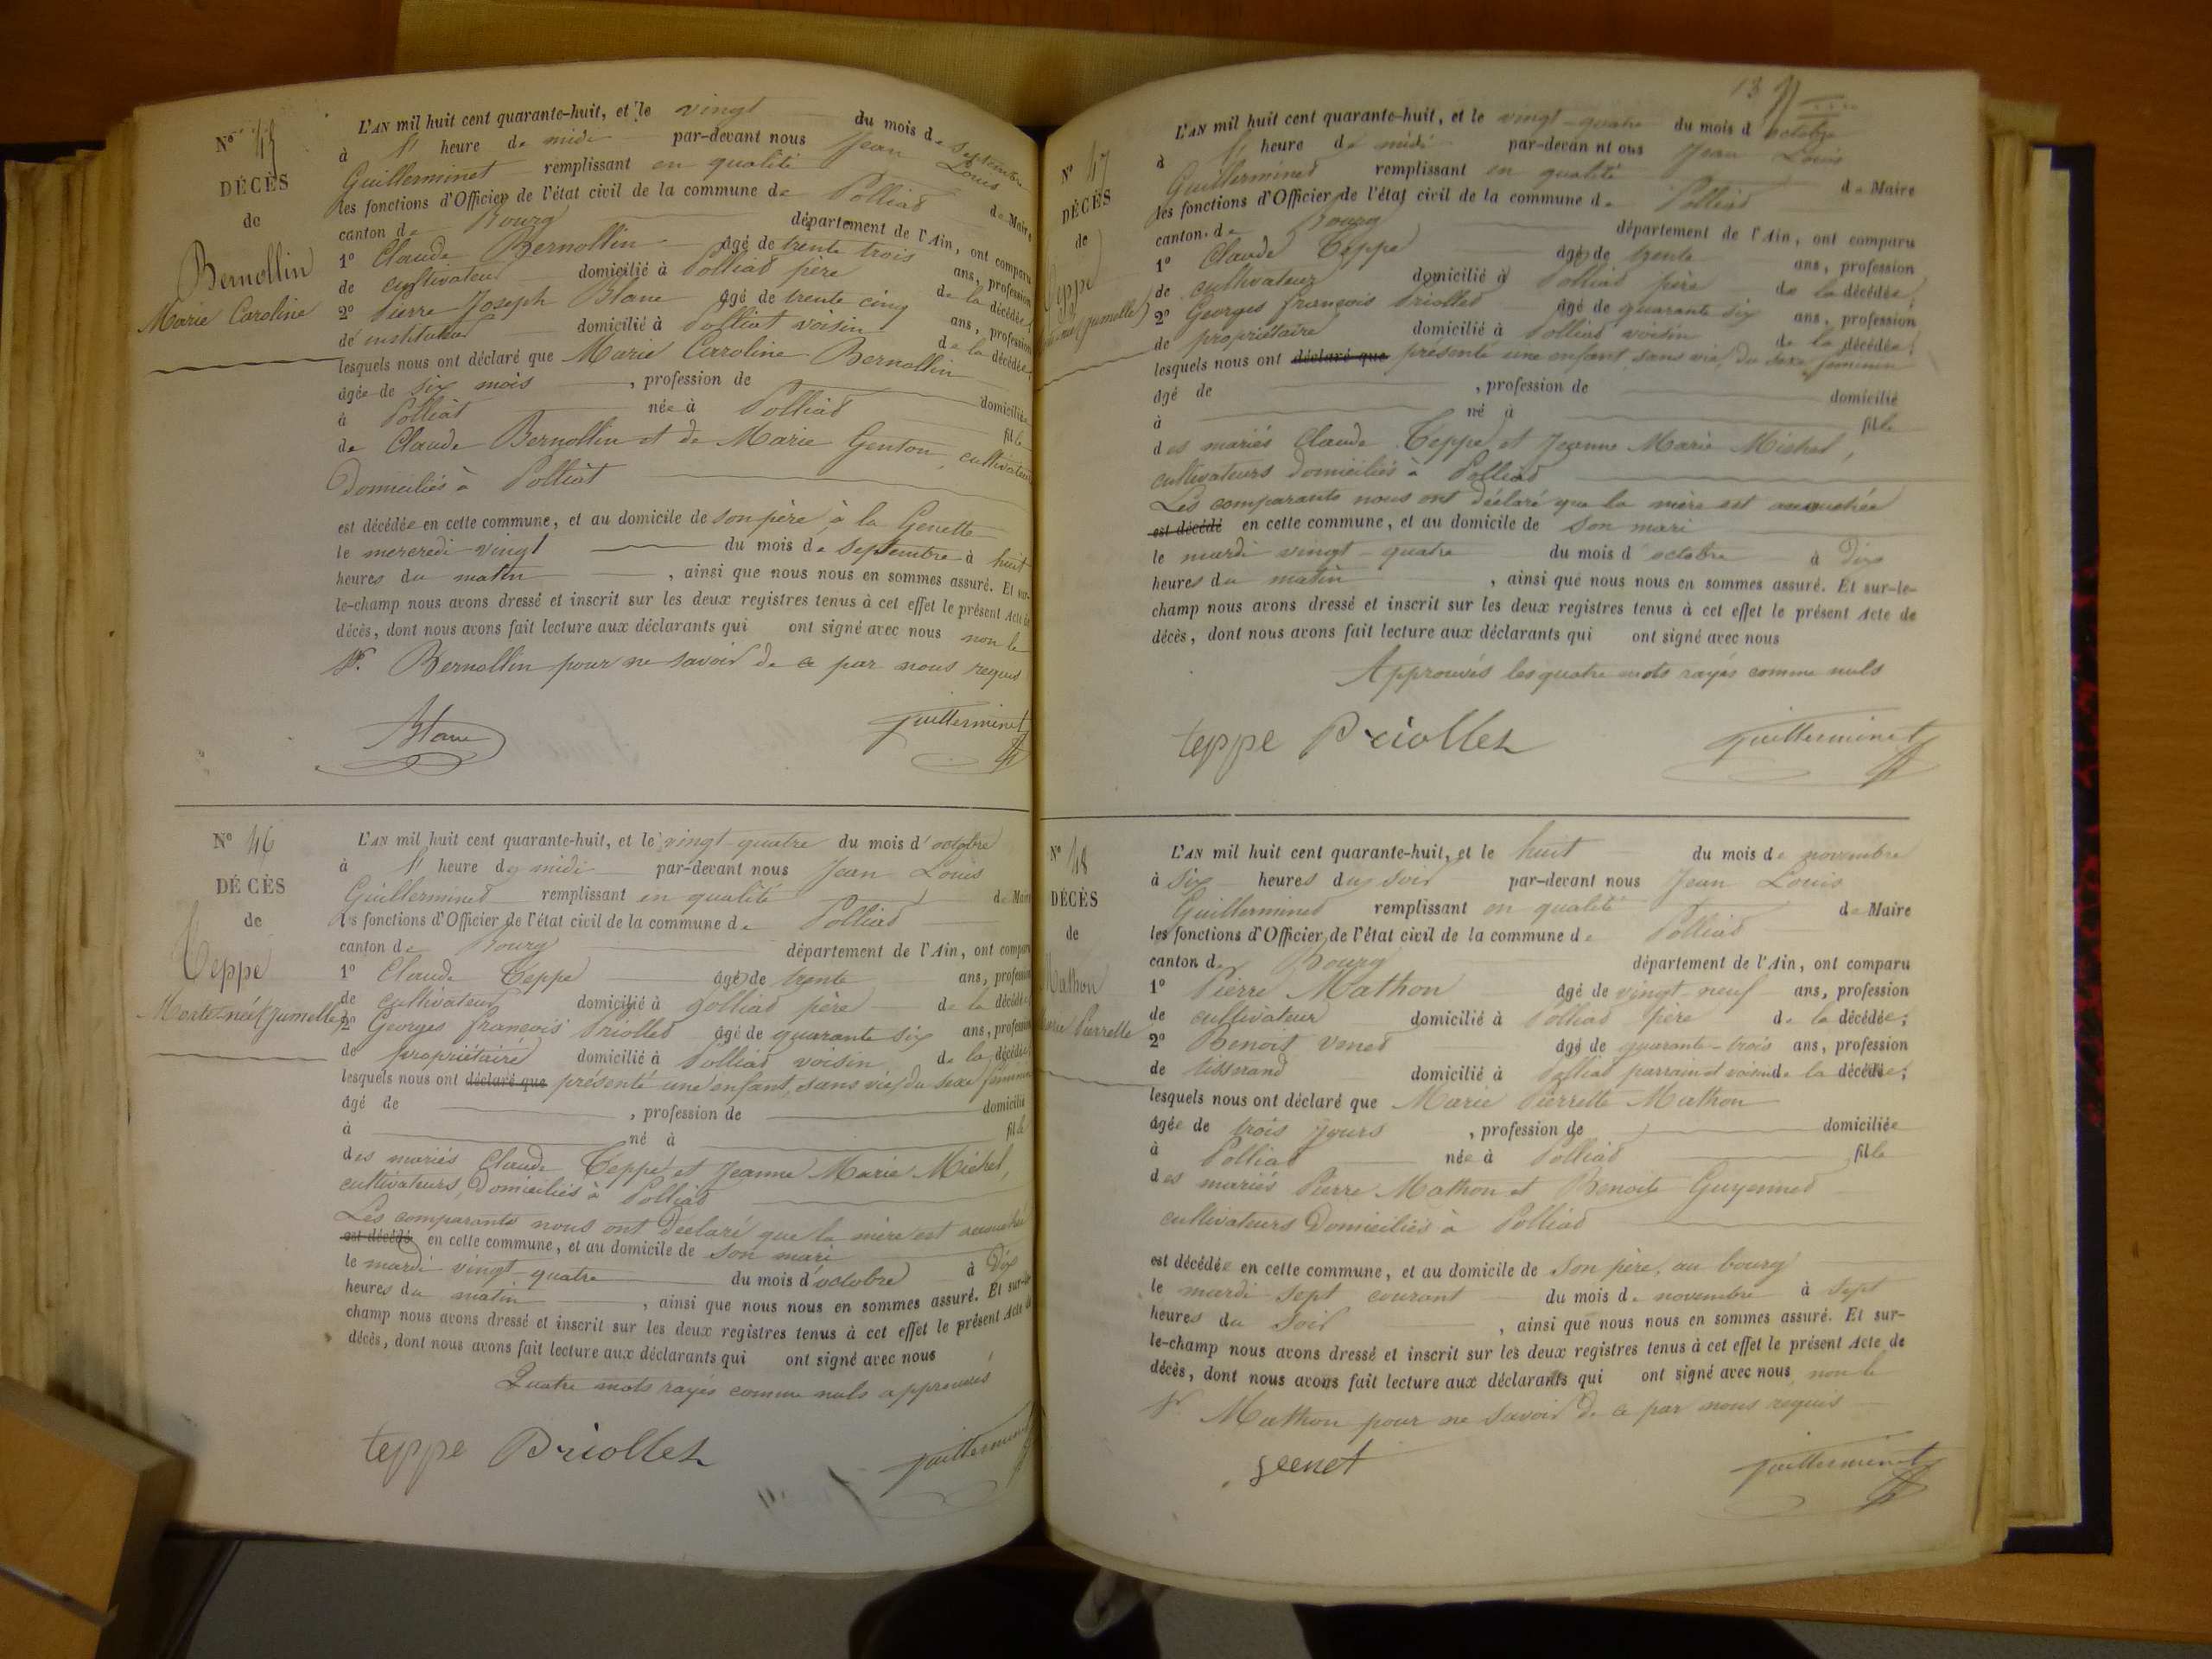 N° 45
DÉCÈS
de
Bernollin
Marie Caroline
L'AN mil huit cent quarante-huit, et le vingt du mois de septembre
à l' heure de midi par-devant nous Jean Louis
Guillerminet remplissant en qualité de Maire
les fonctions d'Officier de l'état civil de la commune de Polliat
canton de Bourg département de l'Ain, ont comparu
1° Claude Bernollin âgé de trente trois ans, profession
de cultivateur domicilié à Polliat père de la décédée;
2° Pierre Joseph Blanc âgé de trente cinq ans, profession
de instituteur domicilié à Polliat voisin de la décédée;
lesquels nous ont déclaré que Marie Carroline Bernollin
âgée de six mois , profession de domiciliée
à Polliat née à Polliat fille
de Claude Bernollin et de Marie Genton, cultivateurs
Domiciliés à Polliat
est décédée en cette commune, et au domicile de son père, à la Genette
le mercredi vingt du mois de septembre à huit
heures du matin , ainsi que nous nous en sommes assuré. Et sur-
le-champ nous avons dressé et inscrit sur les deux registres tenus à cet effet le présent Acte de
décès, dont nous avons fait lecture aux déclarants qui ont signé avec nous non le
Sr. Bernollin pour ne savoir de ce par nous requis
Blanc Guillerminet
N° 46
DÉCÈS
de
Teppe
Morte-née (jumelle)
L'AN mil huit cent quarante-huit, et le vingt-quatre du mois d'octobre
à l' heure de midi par-devant nous Jean Louis
Guillerminet remplissant en qualité de Maire
les fonctions d'Officier de l'état civil de la commune de Polliat
canton de Bourg département de l'Ain, ont comparu
1° Claude Teppe âgé de trente ans, profession
de cultivateur domicilié à Polliat père de la décédée
2° Georges françois Priollet âgé de quarante six ans, profession
de propriétaire domicilié à Polliat voisin de la décédée
lesquels nous ont déclaré que présenté une enfant, sans vie, du sexe féminin
âgé de , profession de domicilié
à né à fille
des mariés Claude Teppe et Jeanne Marie Michel,
cultivateurs, Domiciliés à Polliat
Les comparants nous ont Déclaré que la mère est accouchée
est décédé en cette commune, et au domicile de son mari
le mardi vingt-quatre du mois d'octobre à Dix
heures du matin , ainsi que nous nous en sommes assuré. Et sur-le-
champ nous avons dressé et inscrit sur les deux registres tenus à cet effet le présent Acte de
décès, dont nous avons fait lecture aux déclarants qui ont signé avec nous
Quatre mots rayés comme nuls approuvés
teppe Priollet Guillerminet
13
N° 47
DÉCÈS
de
Teppe
(jumelle)
L'AN mil huit cent quarante-huit, et le vingt-quatre du mois d'octobre
à l' heure de midi par-devan nt ous Jean Louis
Guillerminet remplissant en qualité de Maire
les fonctions d'Officier de l'état civil de la commune de Polliat
canton de Bourg département de l'Ain, ont comparu
1° Claude Teppe âgé de trente ans, profession
de cultivateur domicilié à Polliat père de la décédée;
2° Georges françois Priollet âgé de quarante six ans, profession
de propriétaire domicilié à Polliat voisin de la décédée;
lesquels nous ont déclaré que présenté une enfant, sans vie, du sexe féminin
âgé de , profession de domicilié
à né à fille
des mariés Claude Teppe et Jeanne Marie Michel,
cultivateurs Domiciliés à Polliat
Les comparants nous ont Déclaré que la mère est accouchée
est décédé en cette commune, et au domicile de son mari
le mardi vingt-quatre du mois d'octobre à Dix
heures du matin , ainsi que nous nous en sommes assuré. Et sur-le-
champ nous avons dressé et inscrit sur les deux registres tenus à cet effet le présent Acte de
décès, dont nous avons fait lecture aux déclarants qui ont signé avec nous
Approuvés les quatre mots rayés comme nuls
teppe Priollet Guillerminet
N° 48
DÉCÈS
de
Mathon
Marie Pierrette
L'AN mil huit cent quarante-huit, et le huit du mois de novembre
à six heures du soir par-devant nous Jean Louis
Guillerminet remplissant en qualité de Maire
les fonctions d'Officier de l'état civil de la commune de Polliat
canton de Bourg département de l'Ain, ont comparu
1° Pierre Mathon âgé de vingt-neuf ans, profession
de cultivateur domicilié à Polliat père de la décédée;
2° Benoit Venet âgé de quarante-trois ans, profession
de tisserand domicilié à Polliat parrain et voisin de la décédée;
lesquels nous ont déclaré que Marie Pierrette Mathon
âgée de trois jours , profession de domiciliée
à Polliat née à Polliat fille
des mariés Pierre Mathon et Benoite Guyennet
cultivateurs Domiciliés à Polliat
est décédée en cette commune, et au domicile de son père, au bourg
le mardi sept courant du mois de novembre à sept
heures du soir , ainsi que nous nous en sommes assuré. Et sur-
le-champ nous avons dressé et inscrit sur les deux registres tenus à cet effet le présent Acte de
décès, dont nous avons fait lecture aux déclarants qui ont signé avec nous non le
Sr. Mathon pour ne savoir de ce par nous requis
Guillerminet